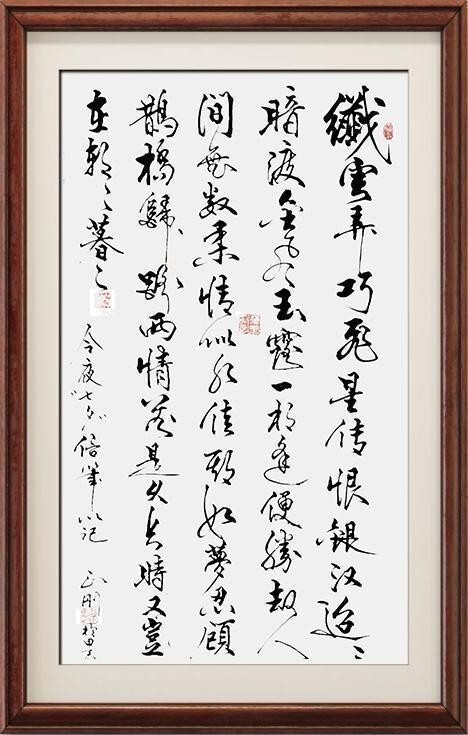 纖雲弄巧飛星传恨銀汉迢〻
暗渡金風玉露一相逢便勝却人
间無数柔情似水佳期如夢忍顧
鵲橋歸路两情若是久長時又豈
在朝〻暮〻
今夜七夕倍筆以记
正刚